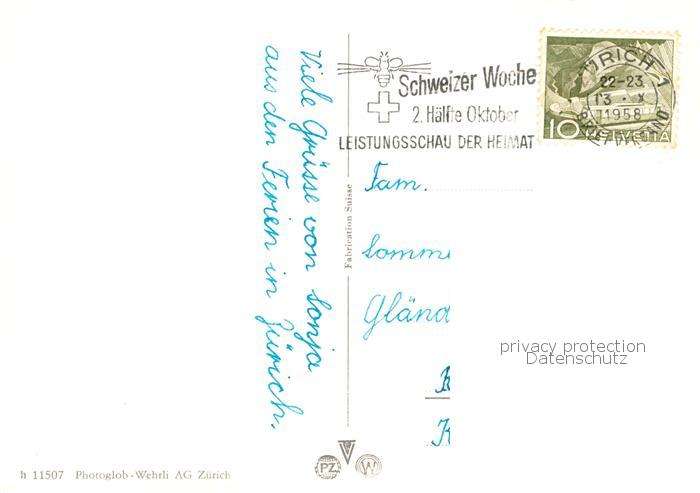 Viele Grüsse von Sonja
aus den Ferien in Zürich.
Fabrication Suisse
Schweizer Woche
2. Hälfte Oktober
LEISTUNGSSCHAU DER HEIMAT
ZÜRICH 1
22-23
13. X
1958
BRIEFVERSAND
10 HELVETIA
Fam.
Somme
Gländ
K
K
privacy protection
Datenschutz
PZ W
h 11507 Photoglob-Wehrli AG Zürich